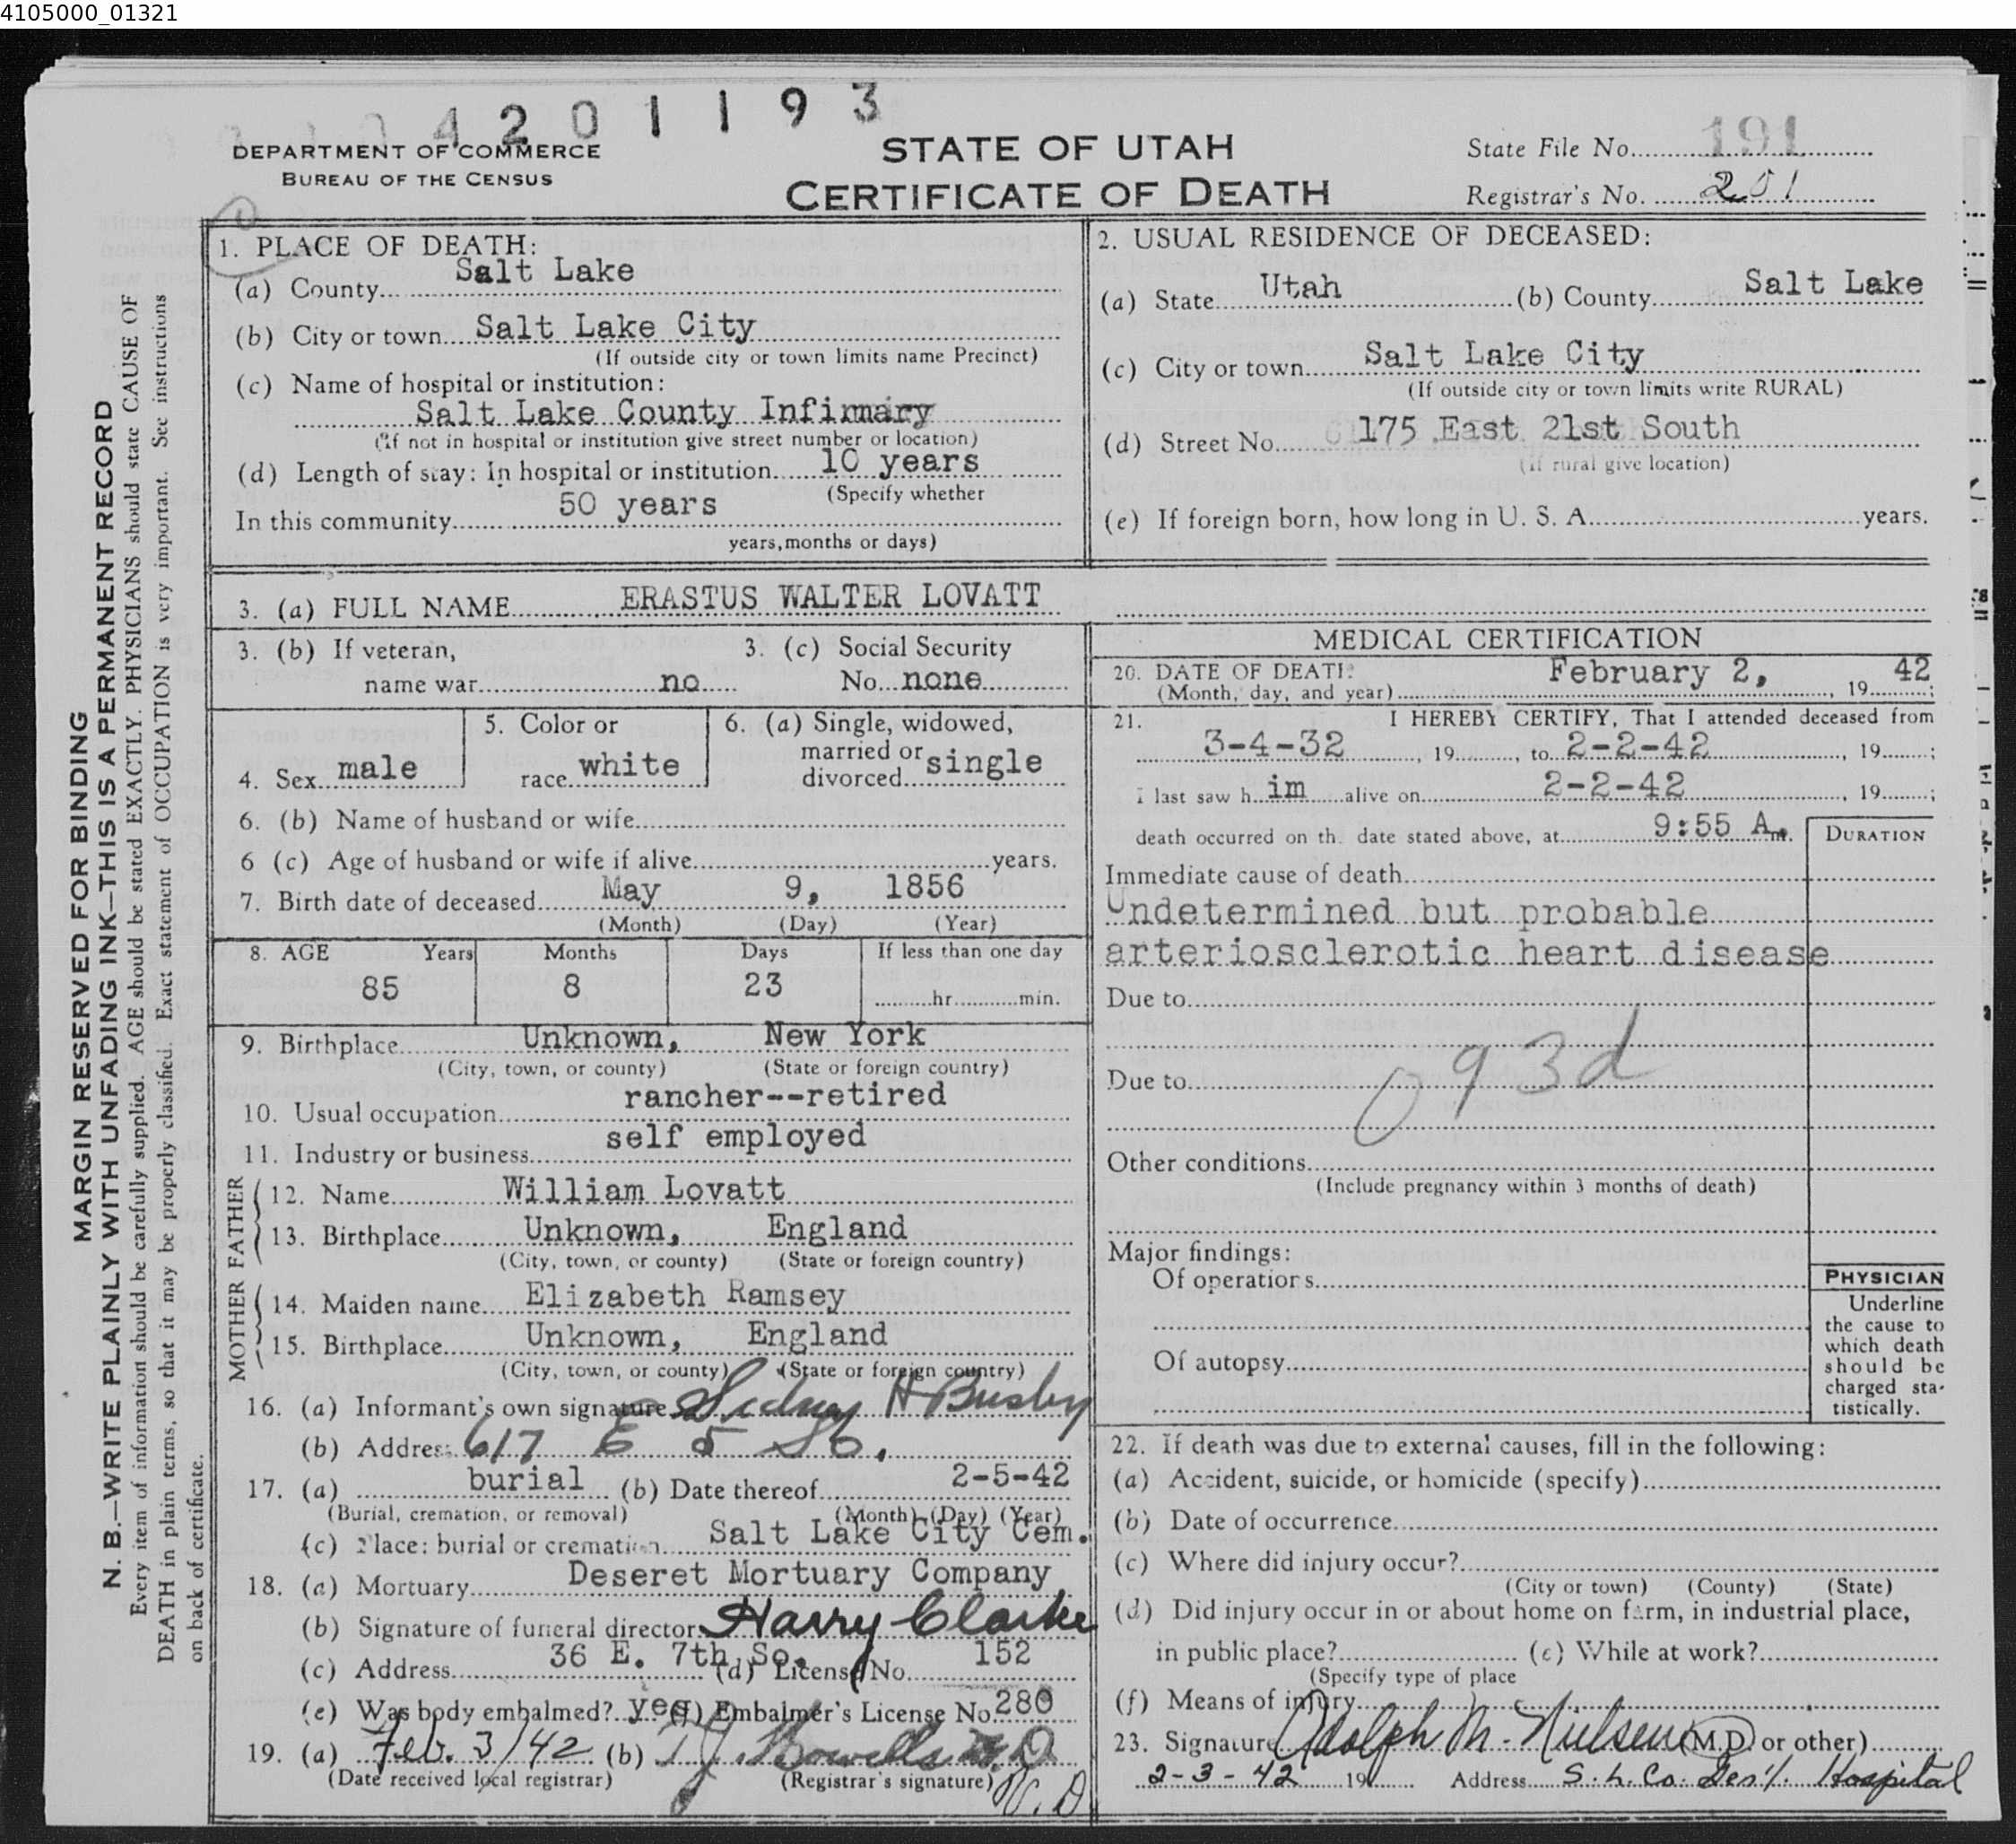 4105000_01321
4201193
DEPARTMENT OF COMMERCE
BUREAU OF THE CENSUS
STATE OF UTAH
CERTIFICATE OF DEATH
State File No. 191
Registrar's No. 201
MARGIN RESERVED FOR BINDING
N. B.—WRITE PLAINLY WITH UNFADING INK—THIS IS A PERMANENT RECORD
Every item of information should be carefully supplied. AGE should be stated EXACTLY. PHYSICIANS should state CAUSE OF
DEATH in plain terms, so that it may be properly classified. Exact statement of OCCUPATION is very important. See instructions
on back of certificate.
1. PLACE OF DEATH:
(a) County Salt Lake
(b) City or town Salt Lake City
(If outside city or town limits name Precinct)
(c) Name of hospital or institution:
Salt Lake County Infirmary
(If not in hospital or institution give street number or location)
(d) Length of stay: In hospital or institution 10 years
(Specify whether
In this community 50 years
years, months or days)
2. USUAL RESIDENCE OF DECEASED:
(a) State Utah (b) County Salt Lake
(c) City or town Salt Lake City
(If outside city or town limits write RURAL)
(d) Street No. 175 East 21st South
(if rural give location)
(e) If foreign born, how long in U. S. A. years.
3. (a) FULL NAME ERASTUS WALTER LOVATT
3. (b) If veteran,
name war no
3. (c) Social Security
No. none
4. Sex male
5. Color or
race white
6. (a) Single, widowed,
married or
divorced single
6. (b) Name of husband or wife
6 (c) Age of husband or wife if alive years.
7. Birth date of deceased May 9, 1856
(Month) (Day) (Year)
8. AGE Years Months Days If less than one day
85 8 23 hr. min.
9. Birthplace Unknown, New York
(City, town, or county) (State or foreign country)
10. Usual occupation rancher--retired
11. Industry or business self employed
FATHER
12. Name William Lovatt
13. Birthplace Unknown, England
(City, town, or county) (State or foreign country)
MOTHER
14. Maiden name Elizabeth Ramsey
15. Birthplace Unknown, England
(City, town, or county) (State or foreign country)
16. (a) Informant's own signature Sidney H Busby
(b) Address 617 E 5 So.
17. (a) burial (b) Date thereof 2-5-42
(Burial, cremation, or removal) (Month) (Day) (Year)
(c) Place: burial or cremation Salt Lake City Cem.
18. (a) Mortuary Deseret Mortuary Company
(b) Signature of funeral director Harry Clarke
(c) Address 36 E. 7th So. (d) License No. 152
(e) Was body embalmed? yes (f) Embalmer's License No. 280
19. (a) Feb. 3/42 (b) T J Howells M.D
(Date received local registrar) (Registrar's signature)
MEDICAL CERTIFICATION
20. DATE OF DEATH: February 2, 42
(Month, day, and year) , 19 ;
21. I HEREBY CERTIFY, That I attended deceased from
3-4-32 , 19 , to 2-2-42 , 19 ;
I last saw h im alive on 2-2-42 , 19 ;
death occurred on the date stated above, at 9:55 A.m.
DURATION
Immediate cause of death
Undetermined but probable
arteriosclerotic heart disease
Due to
093d
Due to
Other conditions
(Include pregnancy within 3 months of death)
Major findings:
Of operations
Of autopsy
PHYSICIAN
Underline
the cause to
which death
should be
charged sta-
tistically.
22. If death was due to external causes, fill in the following:
(a) Accident, suicide, or homicide (specify)
(b) Date of occurrence
(c) Where did injury occur?
(City or town) (County) (State)
(d) Did injury occur in or about home on farm, in industrial place,
in public place? (e) While at work?
(Specify type of place
(f) Means of injury
23. Signature Adolph M. Nielsen (M.D. or other)
2-3-42 19 Address S. L. Co. Gen'l. Hospital